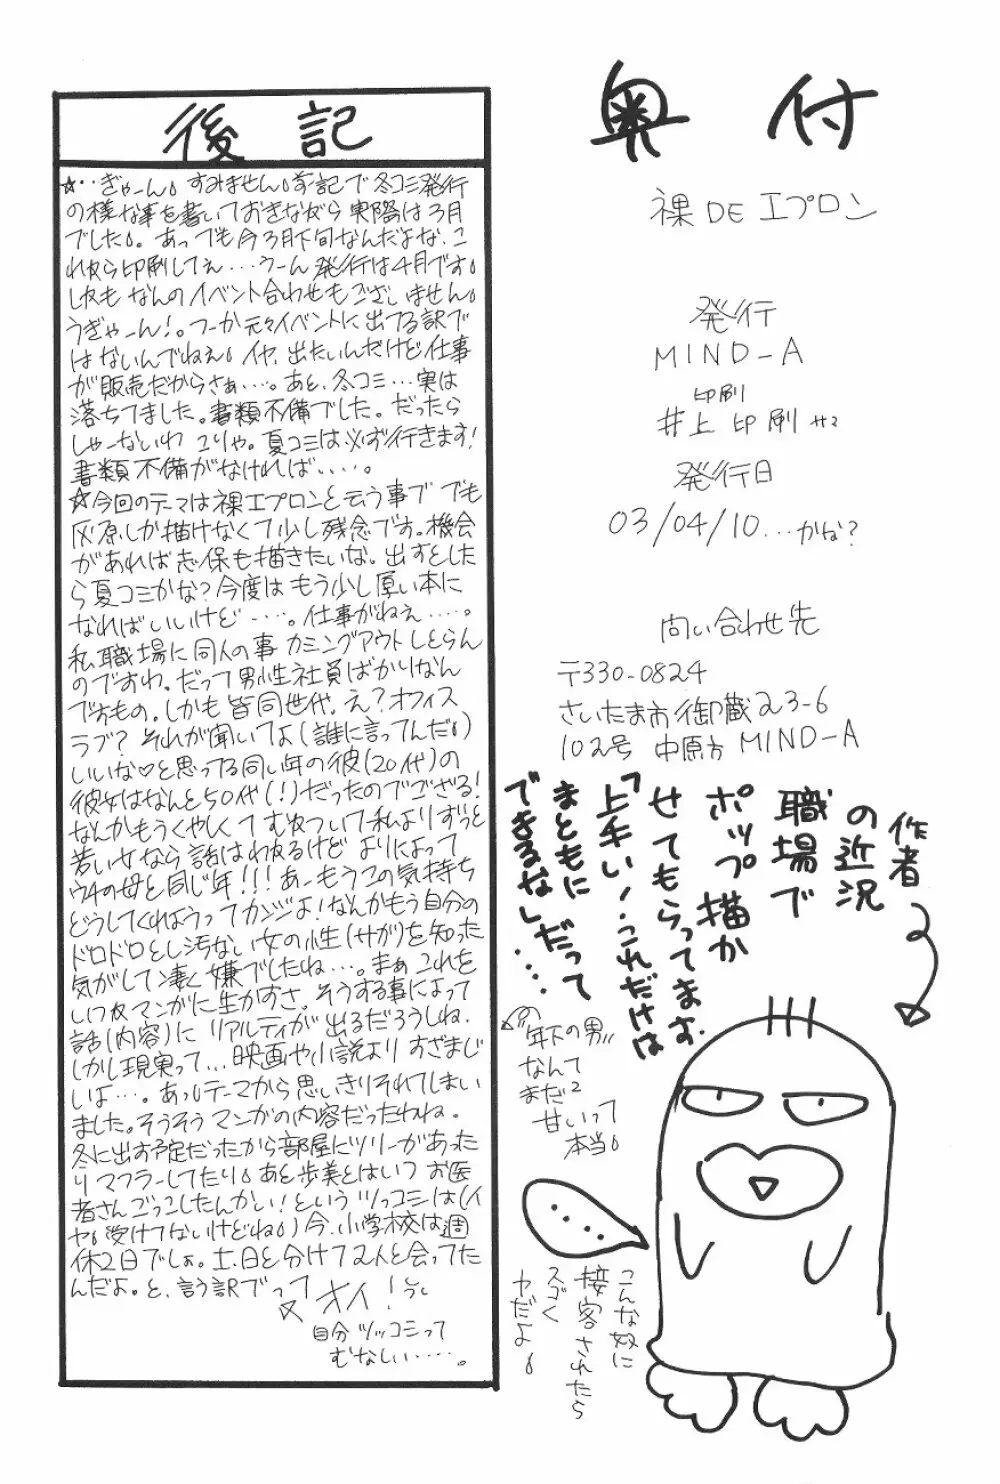 後記
☆‥ぎゃーん。すみません。前記で冬コミ発行
の様な事を書いておきながら実際は3月
でした。あっでも今3月下旬なんだよな、こ
れから印刷してぇ…うーん発行は4月です。
しかもなんのイベント合わせもございません。
うぎゃーん!。つーか元々イベントに出てる訳で
はないんでねぇ。イヤ、出たいんだけど仕事
が販売だからさぁ…。あと、冬コミ…実は
落ちてました。書類不備でした。だったら
しゃーないわ こりゃ。夏コミは必ず行きます!
書類不備がなければ‥‥。
☆今回のテーマは裸エプロンと云う事で でも
灰原しか描けなくて少し残念です。機会
があれば志保も描きたいな。出すとした
ら夏コミかな?今度はもう少し厚い本に
なればいいけど‥‥。仕事がねぇ‥‥。
私 職場に同人の事 カミングアウトしとらん
のですわ。だって男性社員ばかりなん
でおもの。しかも皆同世代。え?オフィス
ラブ?それが聞いてよ(誰に言ってんだ)
いいな♡と思ってる同い年の彼(20代)の
彼女はなんと50代(!)だったのでござる!
なんかもうくやしくて むねついて私よりずっと
若い女なら話はわかるけど よりによって
ウチの母と同じ年!!!あーもうこの気持ち
どうしてくれようってカンジよ!なんかもう自分の
ドロドロとし汚ない女の性(サガ)を知った
気がして凄く嫌でしたね…。まぁこれを
いつかマンガに生かすさ。そうする事によって
話(内容)に リアルティが出るだろうしね、
しかし現実って…映画や小説より すざまじ
いよ…。あっテーマから思いきりそれてしまい
ました。そうそうマンガの内容だったわね。
冬に出す予定だったから部屋にツリーがあった
りマフラーしてたり。あと歩美とはいつ お医
者さんごっこしたんかい!というツッコミは(イ
ヤ受けてないけどね)今、小学校は週
休2日でしょ。土、日と分けて2人と会ってた
んだよ。と、言う訳でって オイ!
自分ツッコミって
むなしい‥‥。
奥付
裸DEエプロン
発行
MIND-A
印刷
井上印刷サマ
発行日
03/04/10…かな?
問い合わせ先
〒330-0824
さいたま市御蔵23-6
102号 中原方 MIND-A
作者
の近況
職場で
ポップ描か
せてもらってます。
「上手い!」これだけは
まともに
できるな。だって
年下の男
なんて
まだ2
甘いって
本当。
こんな奴に
接客されたら
スゴく
ヤだよ。